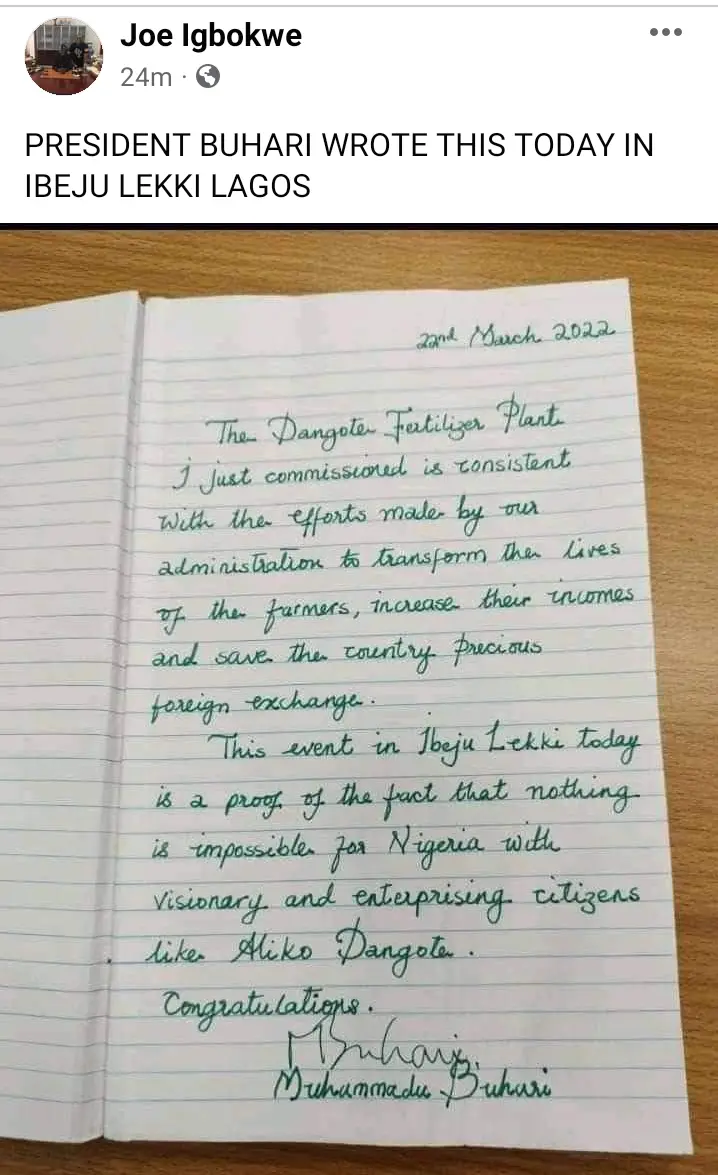 Joe Igbokwe
24m ·
PRESIDENT BUHARI WROTE THIS TODAY IN
IBEJU LEKKI LAGOS
22nd March 2022
The Dangote Fertilizer Plant
I just commissioned is consistent
with the efforts made by our
administration to transform the lives
of the farmers, increase their incomes
and save the country precious
foreign exchange.
This event in Ibeju Lekki today
is a proof of the fact that nothing
is impossible for Nigeria with
visionary and enterprising citizens
like Aliko Dangote.
Congratulations.
MBuhari.
Muhammadu Buhari